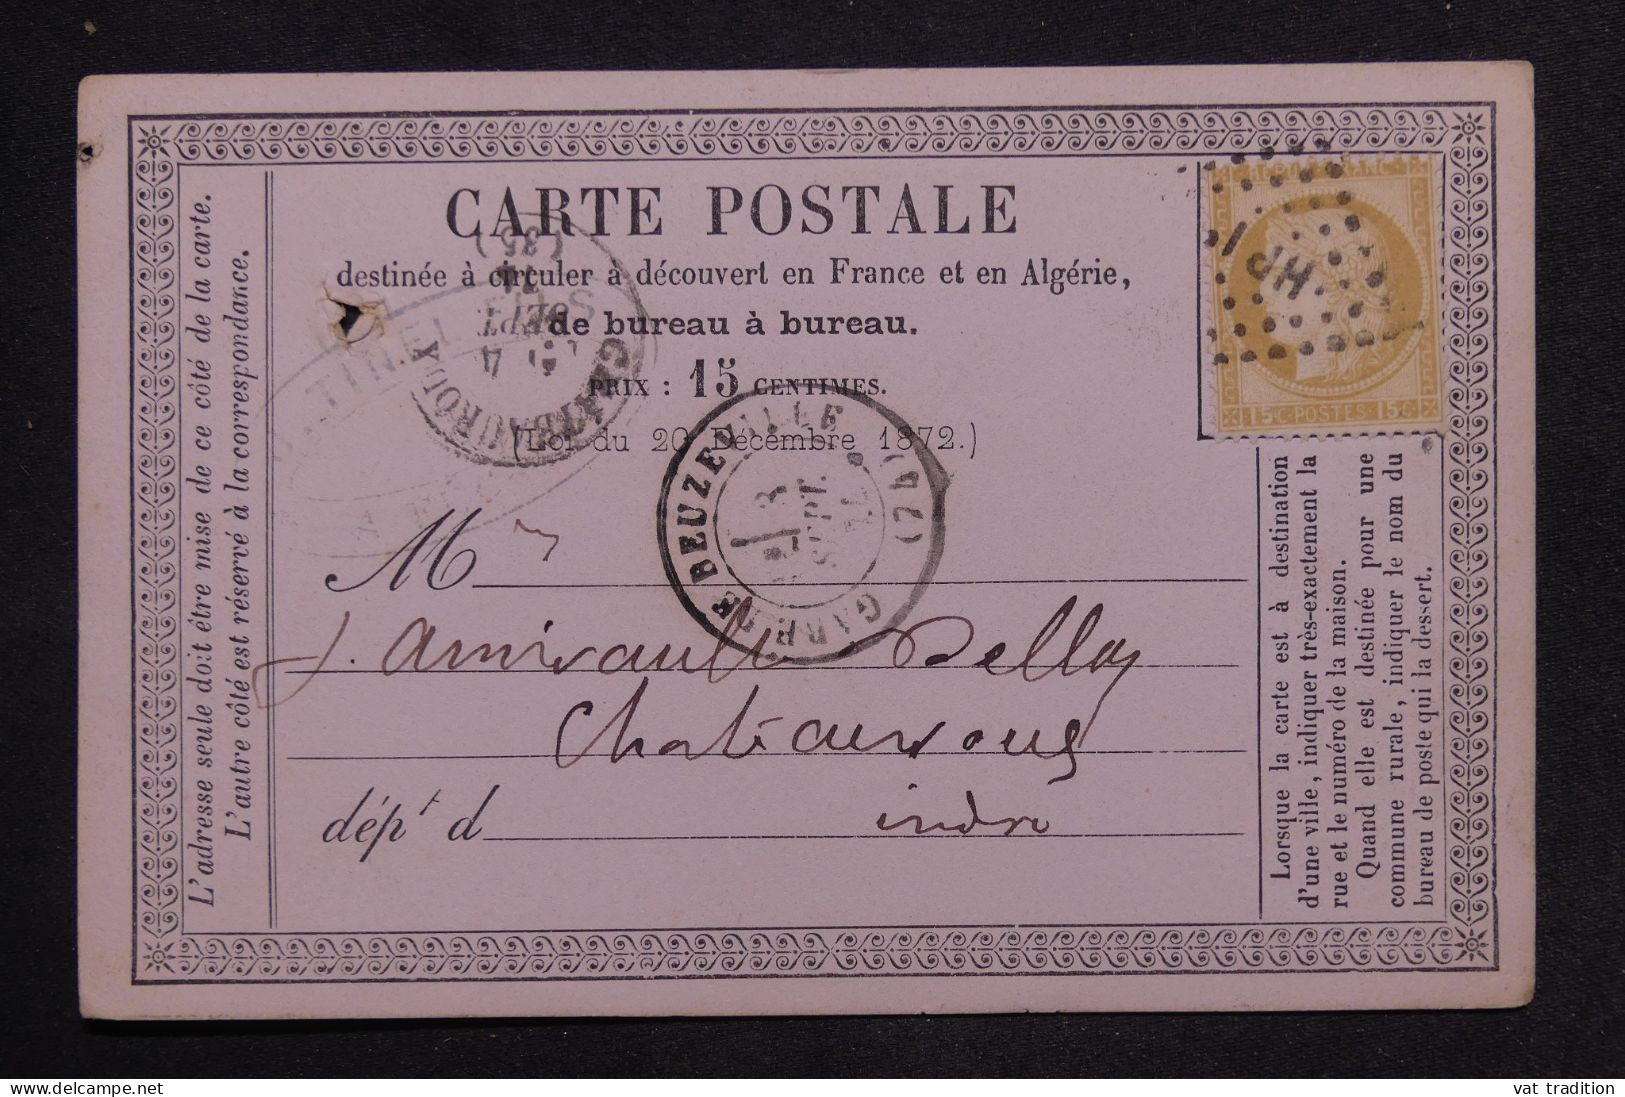 CARTE POSTALE
destinée à circuler à découvert en France et en Algérie,
de bureau à bureau.
PRIX : 15 CENTIMES.
(Loi du 20 Décembre 1872.)
M
Chateauroux
dépt d indre
L'adresse seule doit être mise de ce côté de la carte.
L'autre côté est réservé à la correspondance.
Lorsque la carte est à destination
d'une ville, indiquer très-exactement la
rue et le numéro de la maison.
Quand elle est destinée pour une
commune rurale, indiquer le nom du
bureau de poste qui la dessert.
REPUB FRANC
15c POSTES 15c
GARE DE BEUZEVILLE (74)
3 SEPT. 74
CHATEAUROUX (35)
4 SEPT 74
vat tradition